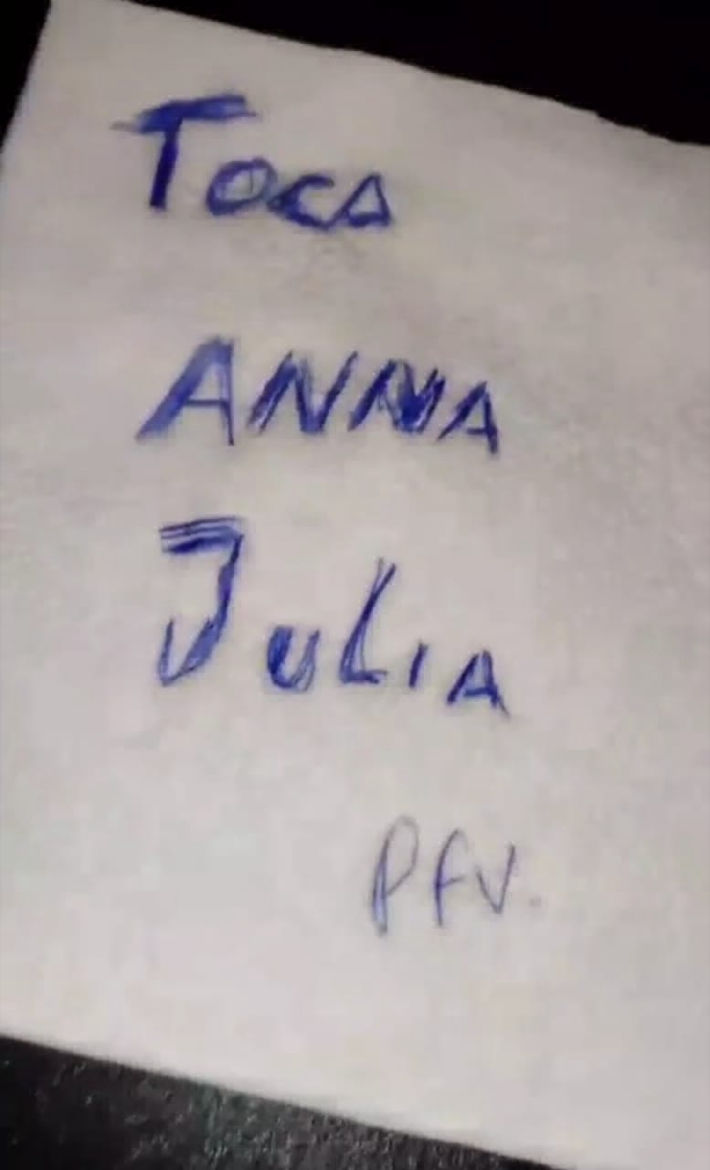 Toca
ANNA
Julia
Pfv.